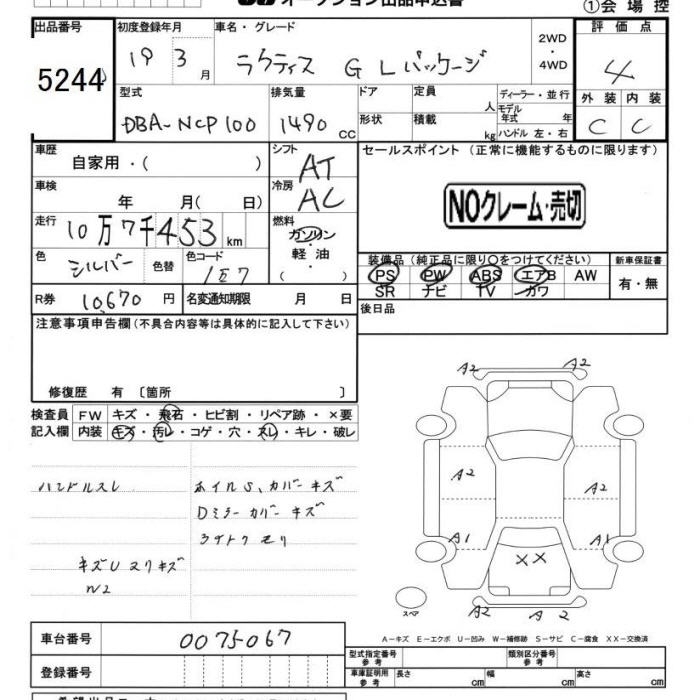 ①会場控
出品番号
初度登録年月
車名・グレード
評価点
5244
19 3月
ラクティス GLパッケージ
2WD・4WD
4
型式
排気量
ドア
定員 人
ディーラー・並行
外装 内装
DBA-NCP100
1490 CC
形状
積載 kg
モデル年式 年
ハンドル 左・右
C C
車歴
自家用・( )
シフト
AT
セールスポイント (正常に機能するものに限ります)
車検
年 月( 日)
冷房
AC
NOクレーム・売切
走行
10万7千453km
燃料
ガソリン・軽油・( )
色
シルバー
色替
色コード
1E7
装備品(純正品に限り○をつけてください)
新車保証書
PS PW ABS エアB AW
有・無
SR ナビ TV カワ
R券 10,670円
名変通知期限 月 日
後日品
注意事項申告欄(不具合内容等は具体的に記入して下さい)
修復歴 有〔箇所 〕
検査員記入欄
FW キズ・飛石・ヒビ割・リペア跡・×要
内装 キズ・汚レ・コゲ・穴・スレ・キレ・破レ
ハンドルスレ
ホイルS、カバーキズ
Dミラーカバーキズ
キズU ヌリキズ
W2
A2
A2
A2
A2
A1
A1
XX
A2
A2
スペア
A-キズ E-エクボ U-凹み W-補修跡 S-サビ C-腐食 XX-交換済
車台番号
0075067
登録番号
型式指定番号 参考
類別区分番号 参考
車庫証明用 参考
長さ cm
幅 cm
高さ cm